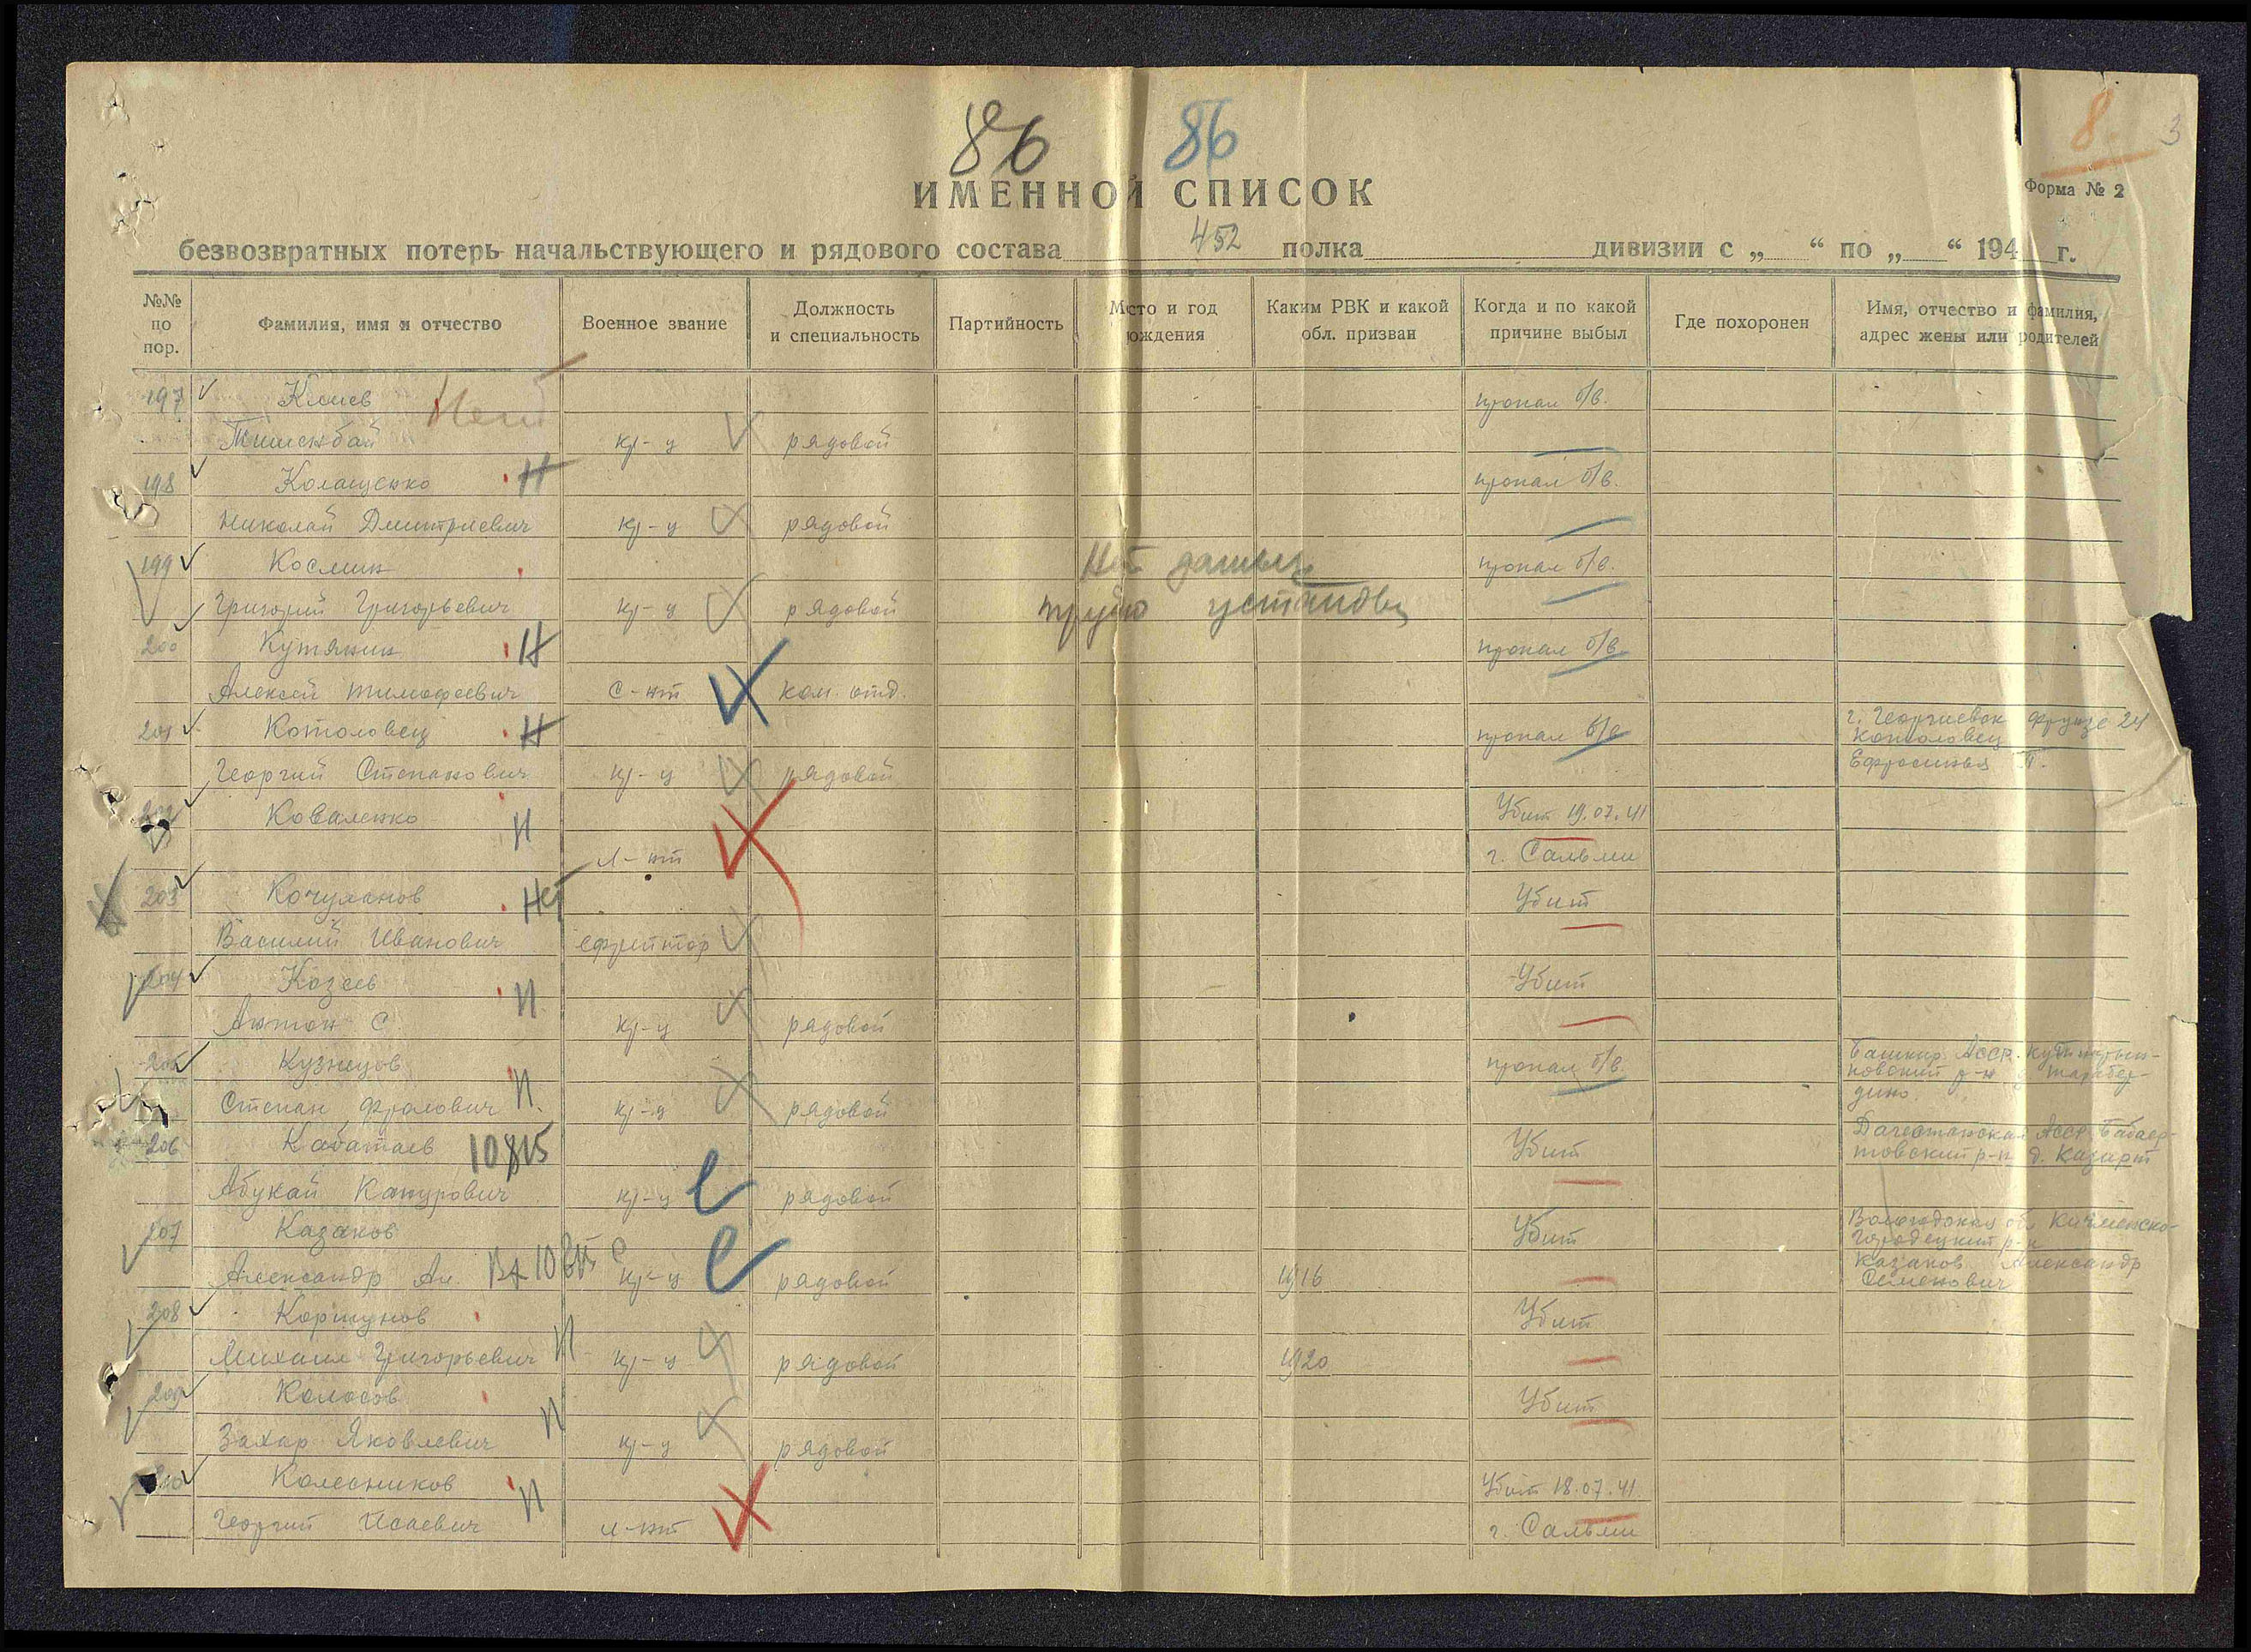 86 86
8. 3
ИМЕННОЙ СПИСОК
Форма № 2
безвозвратных потерь начальствующего и рядового состава 452 полка дивизии с „ “ по „ “ 194 г.
№№ по пор.
Фамилия, имя и отчество
Военное звание
Должность и специальность
Партийность
Место и год рождения
Каким РВК и какой обл. призван
Когда и по какой причине выбыл
Где похоронен
Имя, отчество и фамилия, адрес жены или родителей
197 Клиев пропал б/в.
Тишенбай кр-ц рядовой
198 Колащенко Н пропал б/в.
Николай Дмитриевич кр-ц рядовой
199 Космин Нет данных пропал б/в.
Григорий Григорьевич кр-ц рядовой трудно
200 Кутякин Н пропал б/в
Алексей Тимофеевич С-нт ком. отд.
201 Котоловец Н пропал б/в г. Георгиевск Фрунзе 24
Котоловец
Георгий Степанович кр-ц рядовой Ефросинья Т.
202 Коваленко Н Убит 19.07.41
л-нт г. Сальми
203 Кочуманов Нет Убит
Василий Иванович ефрейтор
204 Козеев Н Убит
Антон С. кр-ц рядовой
205 Кузнецов Н пропал б/в. Башкир. АССР.
Степан Фролович кр-ц рядовой
206 Кабатаев 10815 Убит Дагестанская АССР
р-н д. Казарт
Абукай кр-ц рядовой
207 Казаков Убит Вологодская об. Кичменско-
Городецкий р-н
Александр Ал. кр-ц рядовой 1916 Казаков Александр
Семенович
208 Коршунов Убит
Михаил Григорьевич Н кр-ц рядовой 1920
209 Колосов Убит
Захар Яковлевич Н кр-ц рядовой
210 Колесников Н Убит 18.07.41.
Георгий Исаевич л-нт г. Сальми